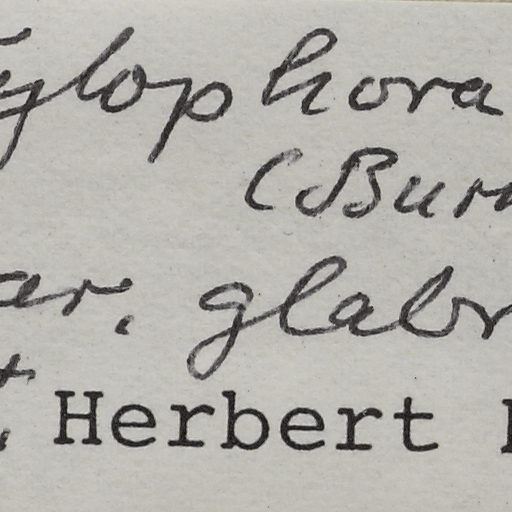 Tylophora
(Burm
ar. glabr
t. Herbert